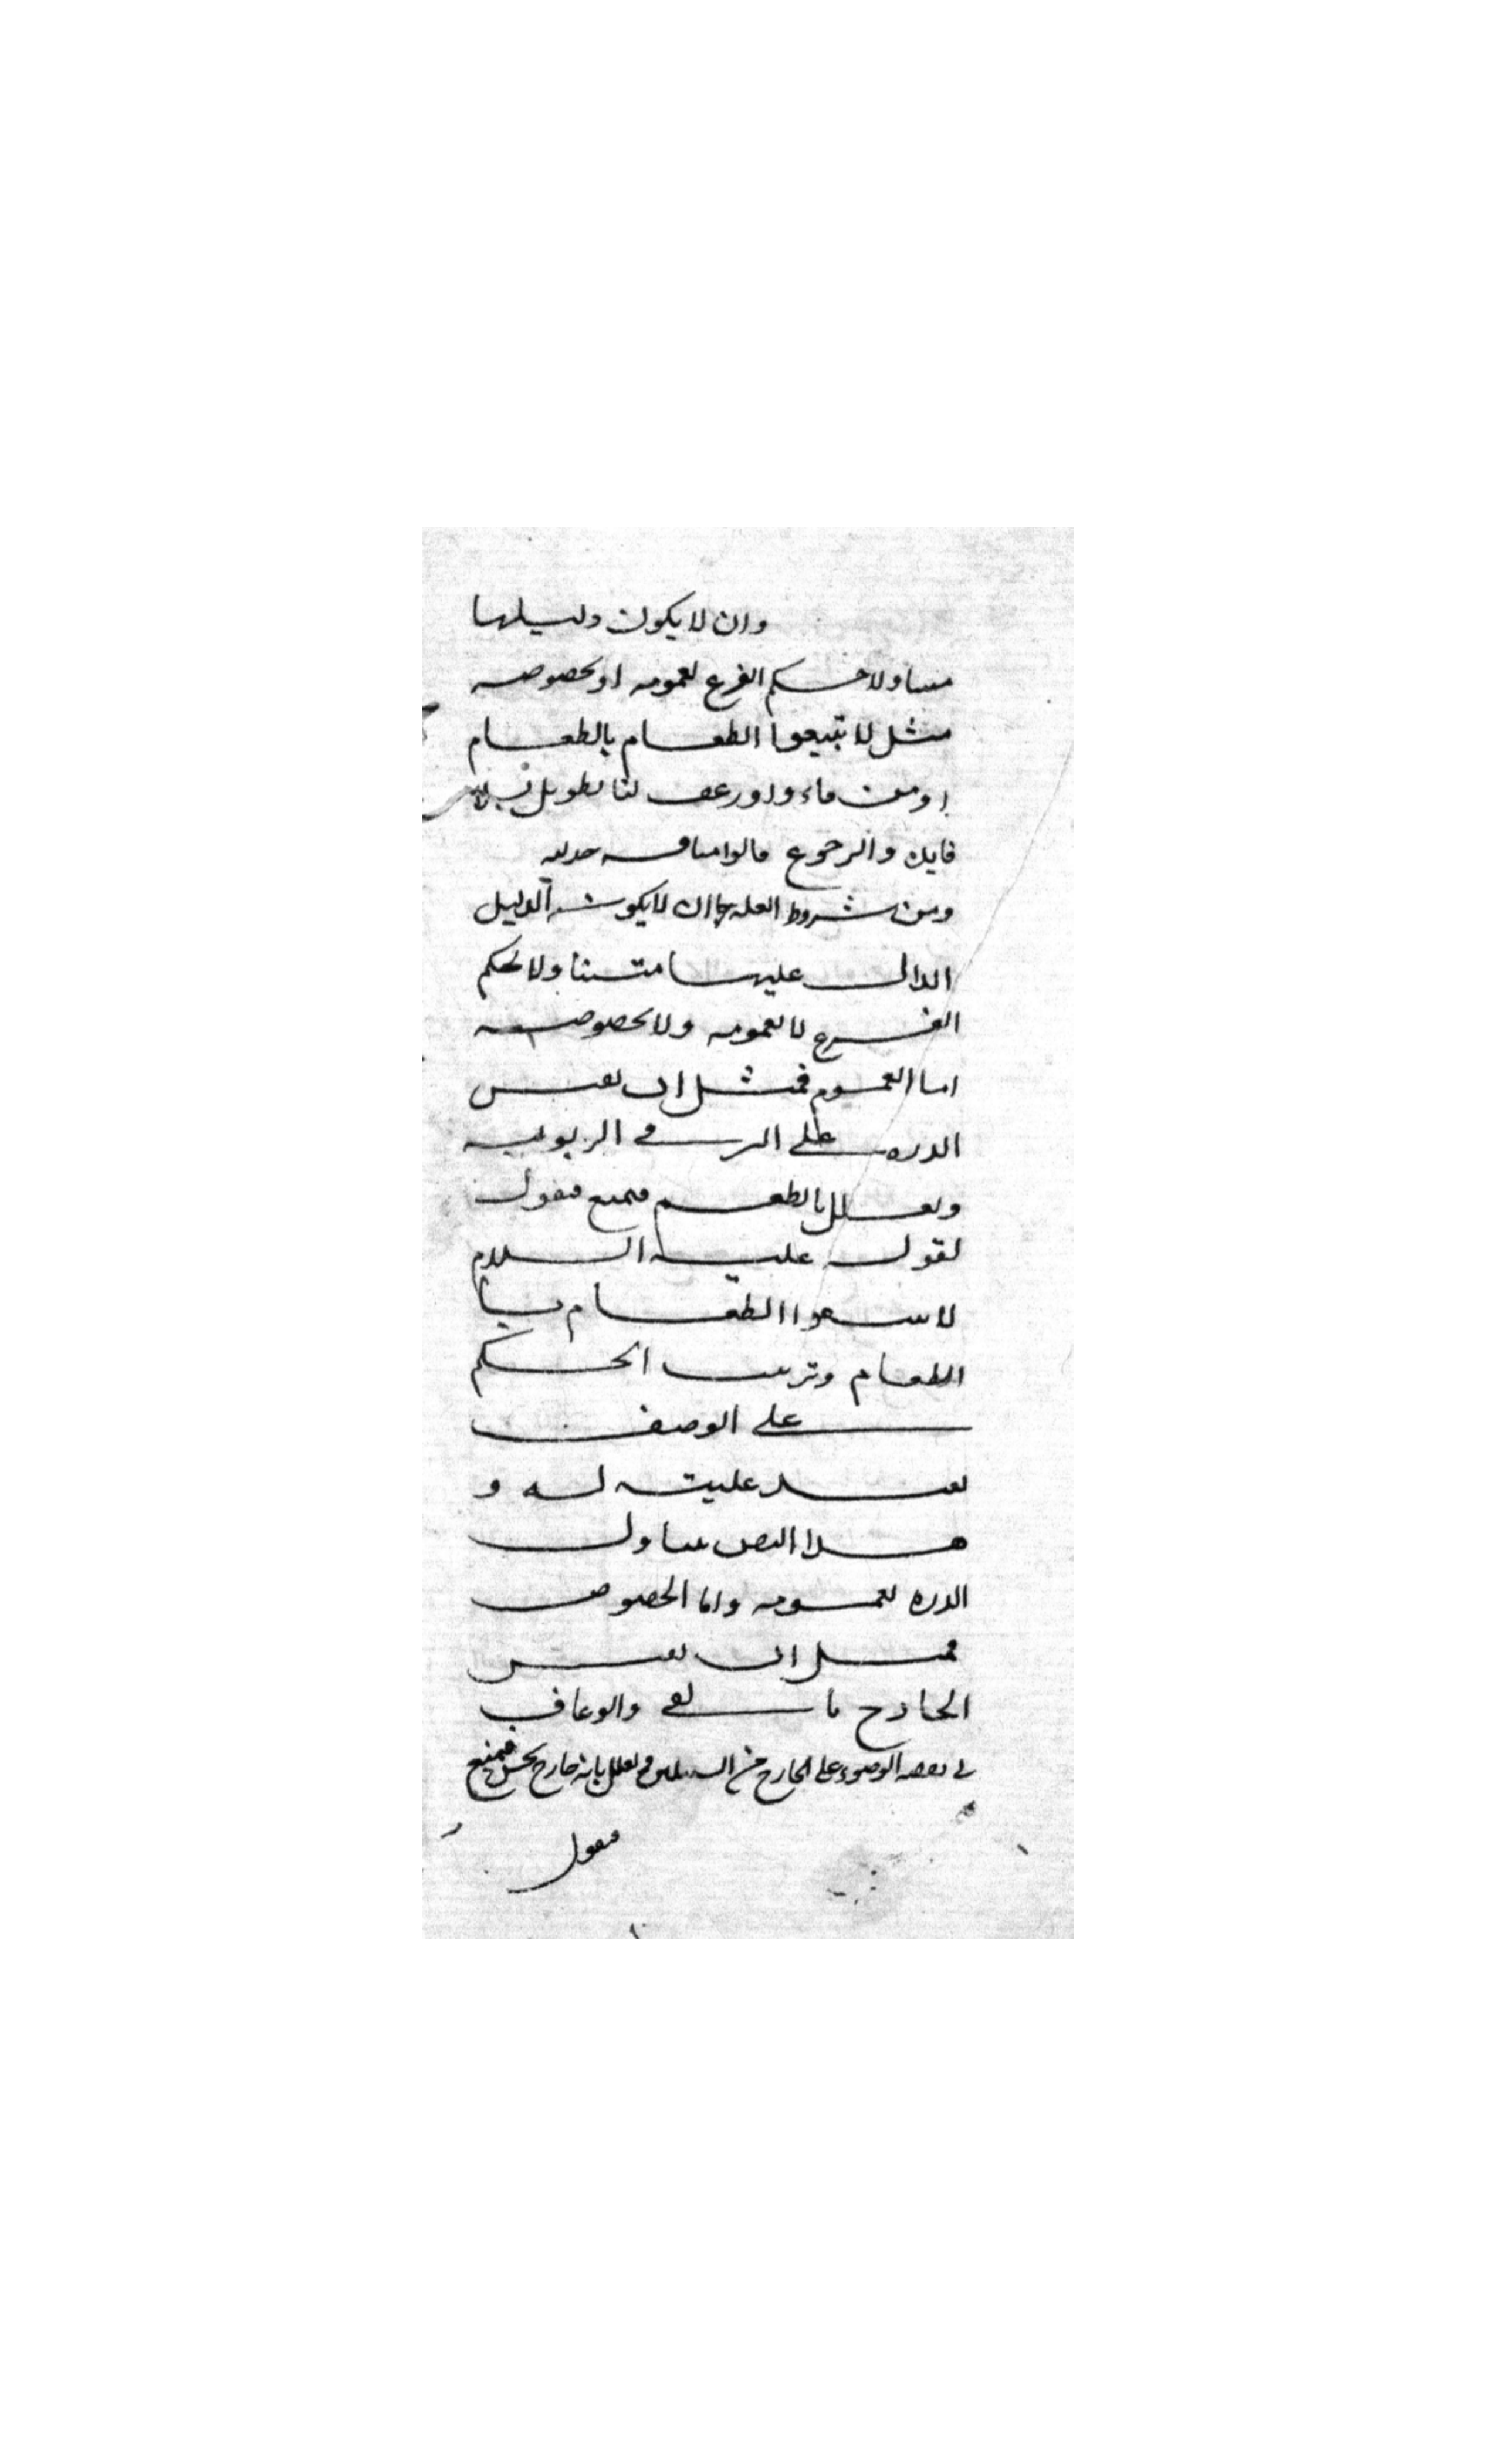 وان لا يكون دليلها
متناولا حكم الفرع بعمومه او بخصوصه
مثل لا تبيعوا الطعام بالطعام
او من قاء او رعف لنا تطويل بلا
فايدة والرجوع قالوا مناقشة جدلية
ومن شروط العلة ان لا يكون الدليل
الدال عليها متناولا لحكم
الفرع لا بعمومه ولا بخصوصه
اما العموم فمثل ان يقيس
الذرة على البر في الربوية
ويعلل بالطعم فيمنع فيقول
لقوله عليه السلام
لا تبيعوا الطعام با
الطعام وترتيب الحكم
على الوصف
يفيد عليته له و
هذا النص يتناول
الذرة بعمومه واما الخصوص
فمثل ان يقيس
الخارج بالقي والرعاف
في نقضه الوضوء على الخارج من السبيلين ويعلل بانه خارج نجس فيمنع
فيقول